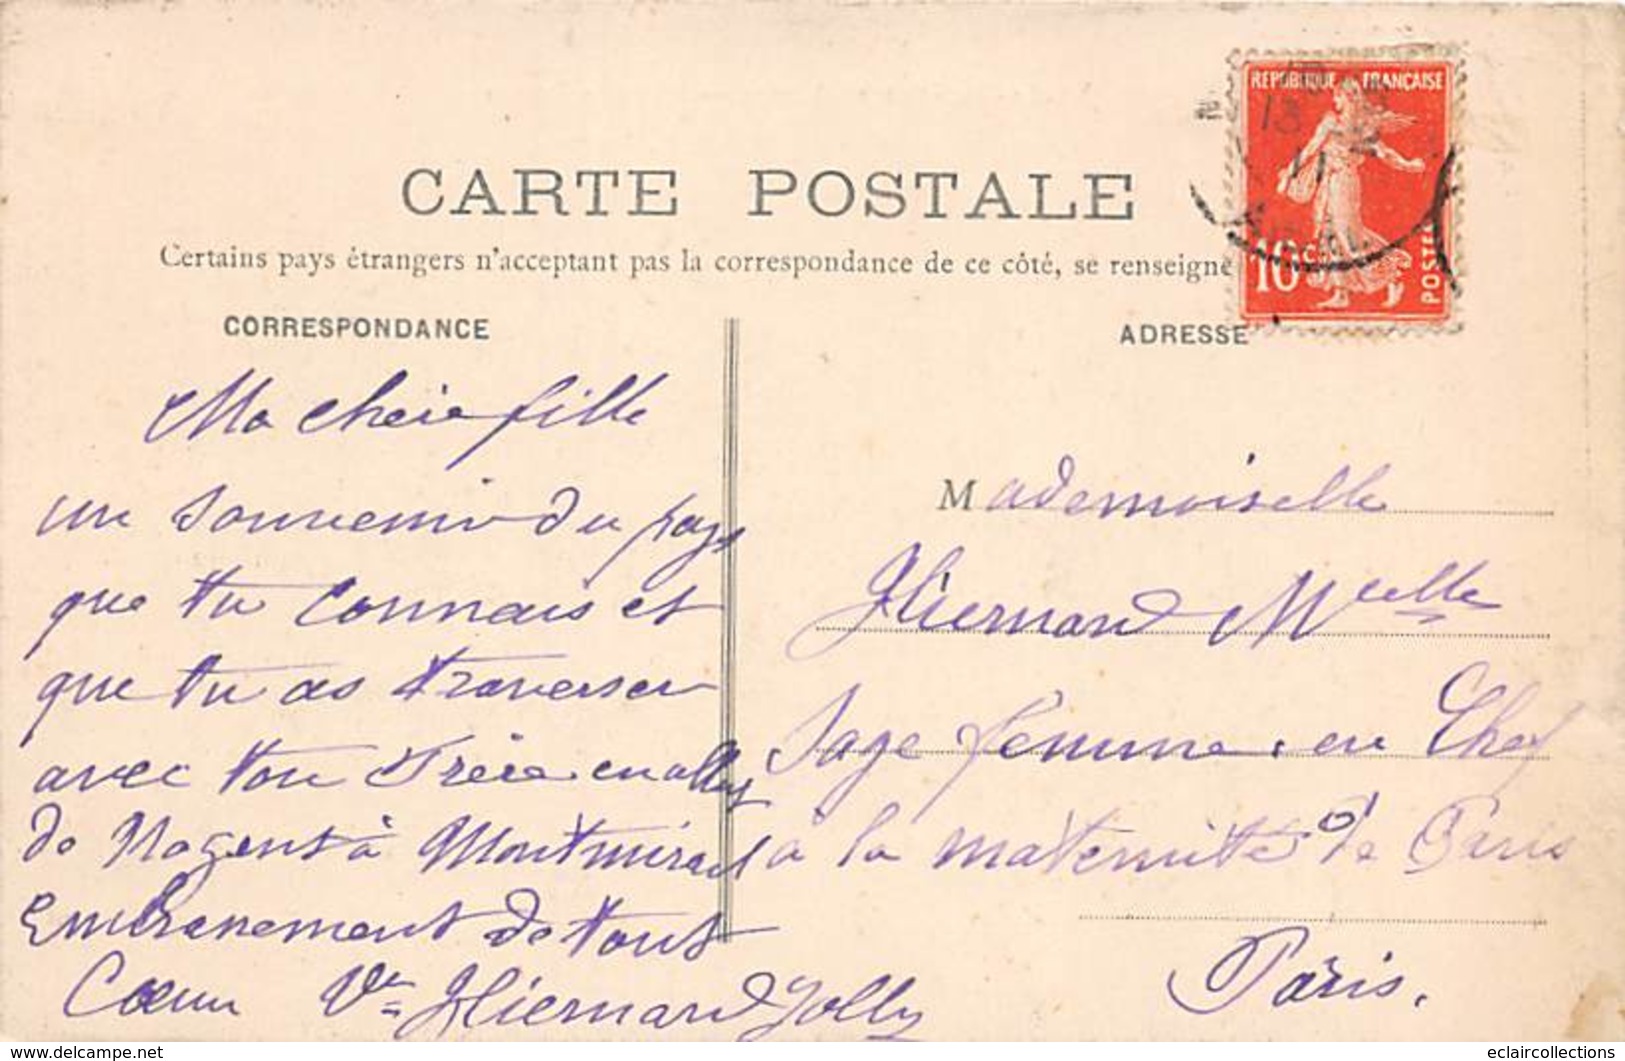 CARTE POSTALE
Certains pays étrangers n'acceptant pas la correspondance de ce côté, se renseigne
REPUBLIQUE FRANÇAISE
10 c
POSTES
13
11
CORRESPONDANCE
Ma cheire fille
un Souvenir du pays
que tu Connais et
que tu as traverser
avec ton Frère en allant
de Nogent à Montmirail
Embrassement de tout
Cœur Vve Hiernard Jolly
ADRESSE
Mademoiselle
Hiernard Mcelle
Sage femme en Chef
à la maternité de Paris
Paris.
www.delcampe.net
eclaircollections